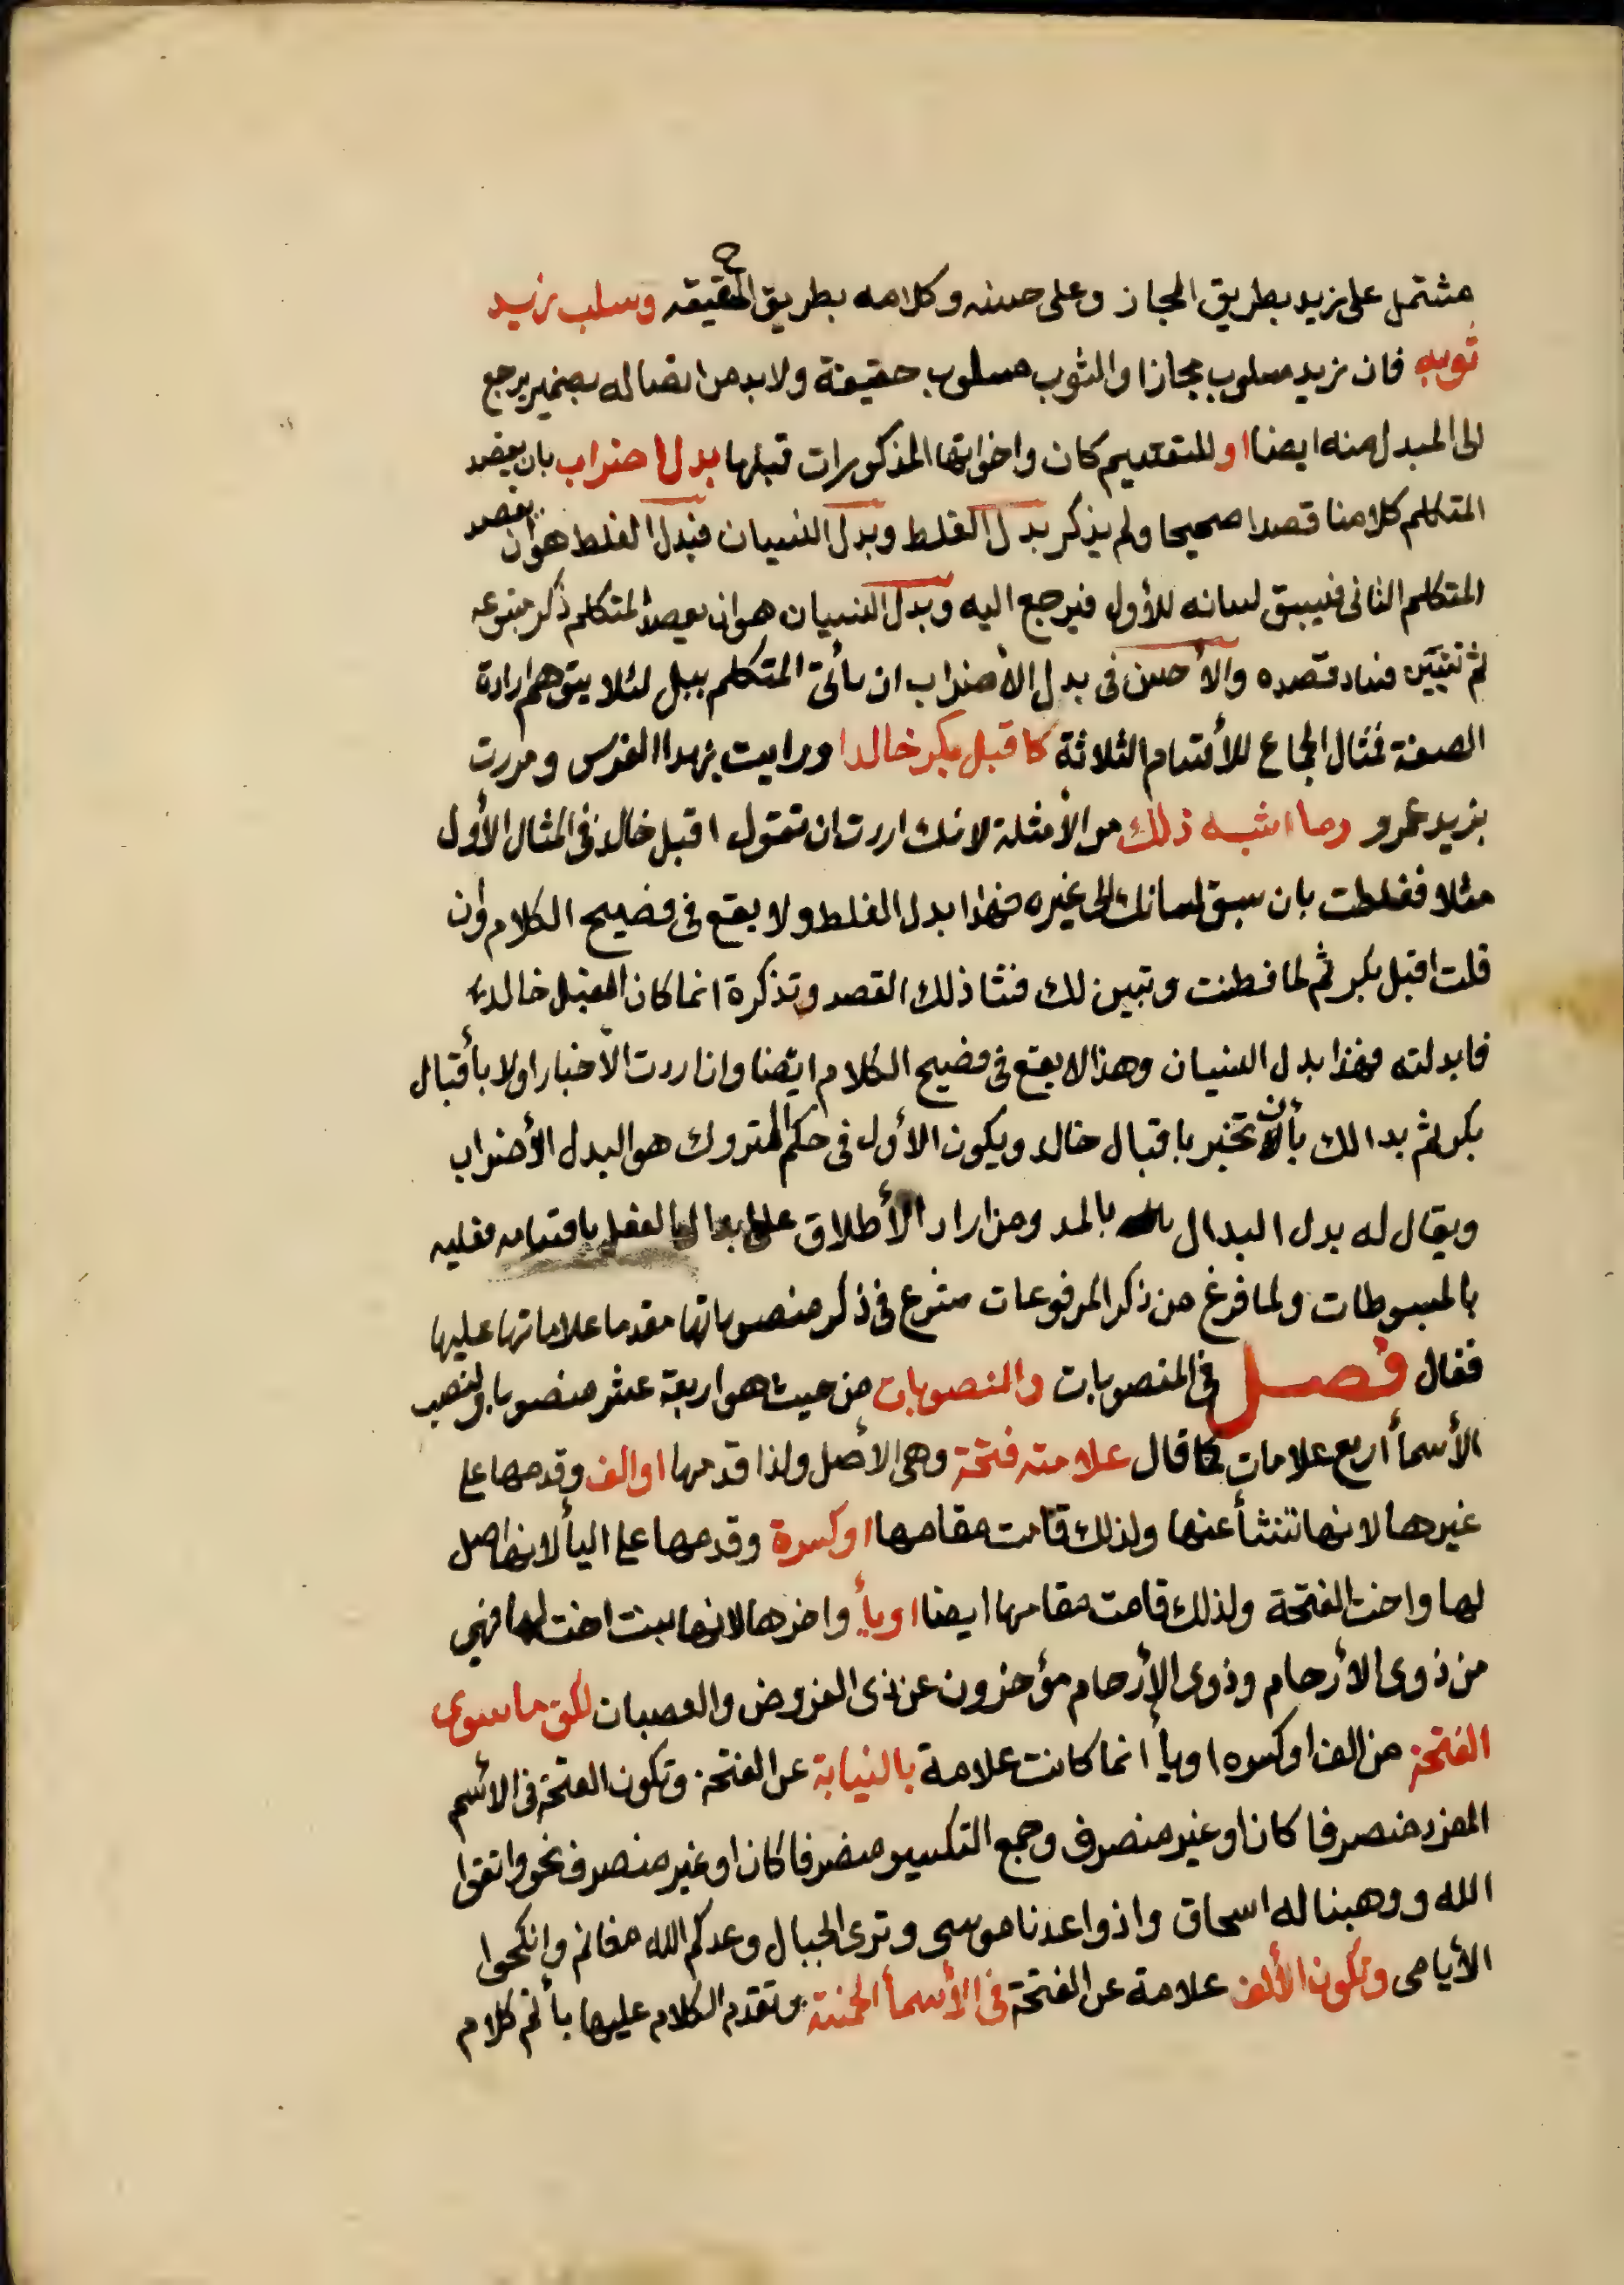 مشتمل على زيد بطريق المجاز وعلى حسنه وكلامه بطريق الحقيقه وسلب زيد
ثوبه فان زيد مسلوب مجازا والثوب مسلوب حقيقة ولابد من اتصاله بضمير يرجع
الى المبدل منه ايضا او للتقديم كان واخواتها المذكورات قبلها بدل اضراب بان يقصد
المتكلم كلامنا قصدا صحيحا ولم يذكر بدل الغلط وبدل النسيان فبدل الغلط هو ان يقصد
المتكلم الثانى فيسبق لسانه للأول فيرجع اليه وبدل النسيان هو ان يقصد المتكلم ذكر متبوعه
ثم تبين فساد قصده والأحسن فى بدل الأضراب ان يأتى المتكلم ببل لئلا يتوهم ارادة
الصفة فمثال الجماع للأقسام الثلاثة كاقبل بكر خالدا ورايت زيدا الفرس ومررت
بزيد عمرو وما اشبه ذلك من الأمثلة لانك اردت ان تقول اقبل خالد فى المثال الأول
مثلا فغلطت بان سبق لسانك الى غيره فهذا بدل الغلط ولا يقع فى فصيح الكلام وان
قلت اقبل بكر ثم لما فطنت وتبين لك فسا ذلك القصد وتذكرة انما كان المقبل خالد
فابدلته فهذا بدل النسيان وهذا لا يقع فى فصيح الكلام ايضا وان اردت الأخبار اولا بأقبال
بكر ثم بدا لك بأن تخبر باقبال خالد ويكون الأول فى حكم المتروك هو البدل الأضراب
ويقال له بدل البدال بالمد ومن اراد الأطلاق على الفعل باقسامه فعليه
بالمبسوطات ولما فرغ من ذكر المرفوعات شرع فى ذكر منصوباتها مقدما علاماتها عليها
فقال فصل فى المنصوبات والمنصوبات من حيث هو اربعة عشر منصوبا ولنصب
الأسمأ أربع علامات كما قال علامته فتحة وهى الاصل ولذا قدمها او الف وقدمها على
غيرها لانها تنشأ عنها ولذلك قامت مقامها او كسرة وقدمها على اليأ لانها اصل
لها واخت الفتحة ولذلك قامت مقامها ايضا او يأ واخرها لانها بنت اخت لها فهى
من ذوى الأرحام وذوى الأرحام مؤخرون عن ذى الفروض والعصبات لكن ما سوى
الفتحة من الف او كسره او يأ انما كانت علامة بالنيابة عن الفتحة وتكون الفتحة فى الأسم
المفرد منصرفا كان او غير منصرف وجمع التكسير منصرفا كان او غير منصرف نحو واتقوا
الله ووهبنا له اسحاق واذ واعدنا موسى وترى الجبال وعدكم الله مغانم وانكحوا
الأيامى وتكون الألف علامة عن الفتحة فى الأسمأ الخمسة وتقدم الكلام عليها بأتم كلام